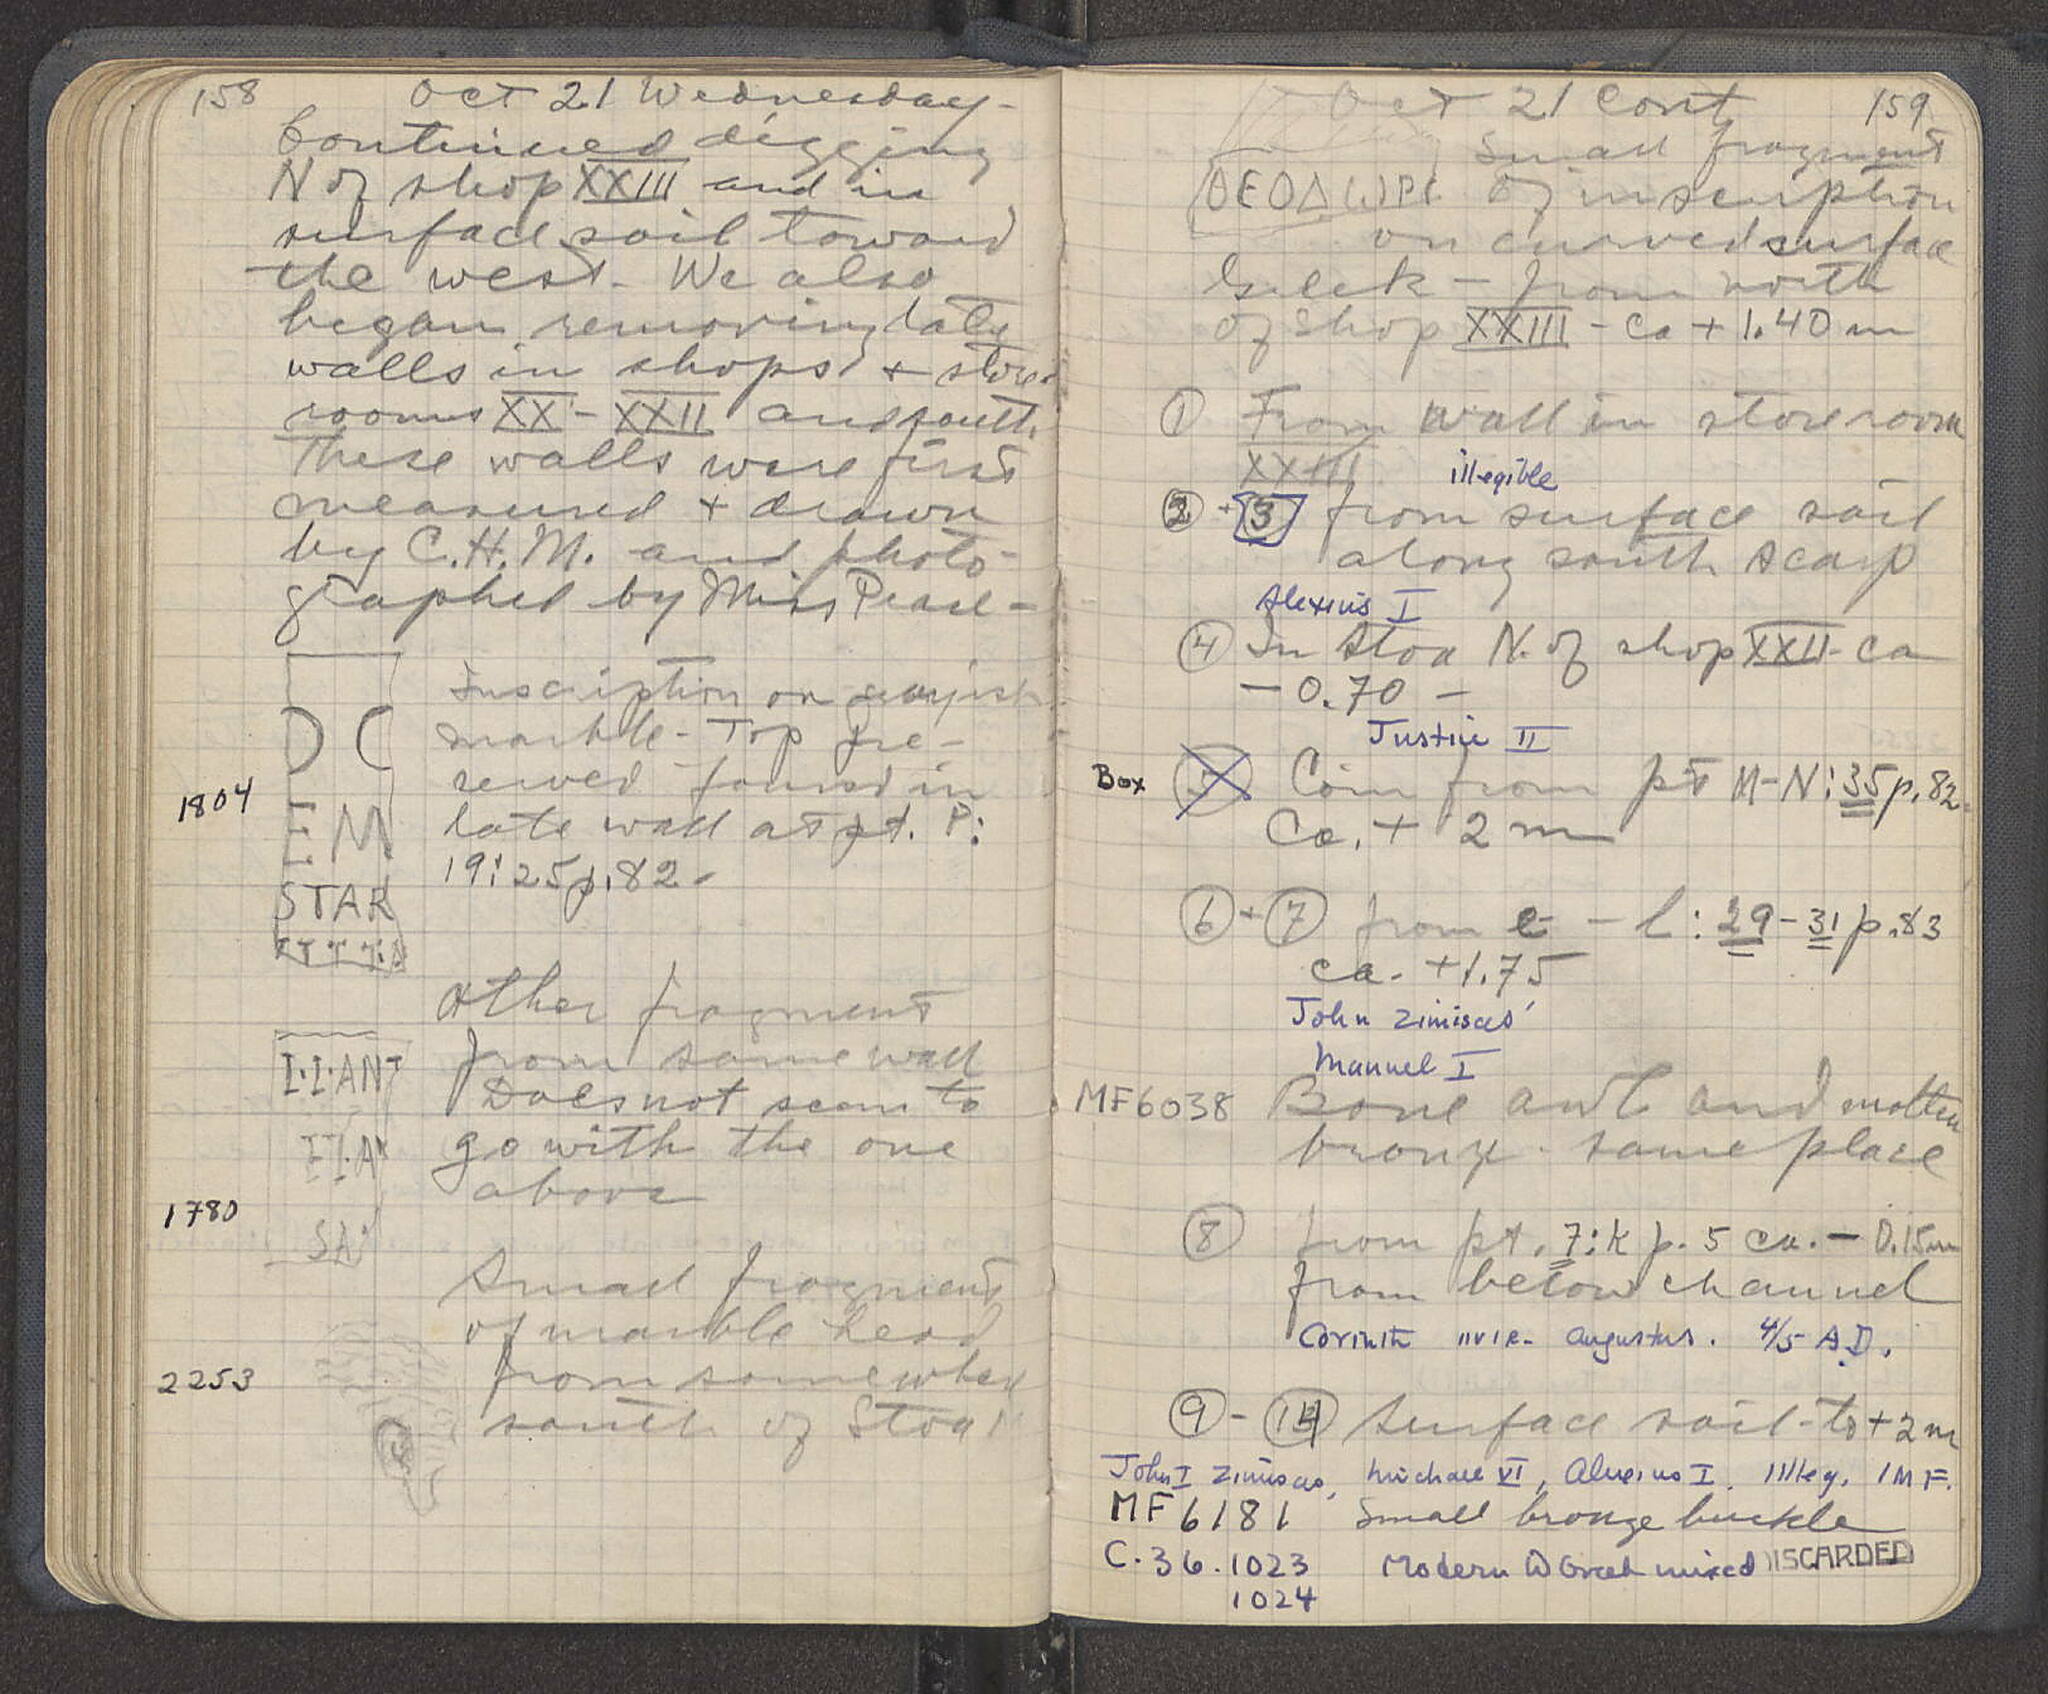 158
Oct 21 Wednesday-
Continued digging
N of shop XXIII and in
surface soil toward
the west. We also
began removing late
walls in shops + store-
rooms XX - XXII and south.
These walls were first
measured + drawn
by C.H.M. and photo-
graphed by Miss Pease-
Inscription on
marble - Top pre-
served found in
late wall at pt. P:
19:25 p. 82 -
1804
D C
E M
STAR
Other fragment
from same wall
Does not seem to
go with the one
above
I·I·ANT
I·I·A
SA
1780
Small fragment
of marble head
from somewhere
south of Stoa
2253
Oct 21 Cont
159
Small fragment
ΘΕΟΔΩΡΕ of inscription
on curved surface
Greek - from north
of Shop XXIII - ca + 1.40 m
① From wall in storeroom
XXIII
illegible
② + ③ from surface soil
along south scarp
Alexius I
④ In Stoa N. of shop XXII - ca
- 0.70 -
Justin II
Box ⑤ Coin from pt M-N:35 p. 82
Ca. + 2 m
⑥ + ⑦ from e - l: 29-31 p. 83
ca. +1.75
John Zimisces
Manuel I
MF6038 Bone awl and molten
bronze - same place
⑧ from pt. 7:k p. 5 ca. - 0.15m
from below channel
Corinth IIVIR- Augustus. 4/5 A.D.
⑨ - ⑭ Surface soil - to + 2 m
John I Zimisces, Michael VI, Alexius I. 1 illeg. 1 M F.
MF 6181 Small bronze buckle
C. 36. 1023 Modern mixed DISCARDED
1024